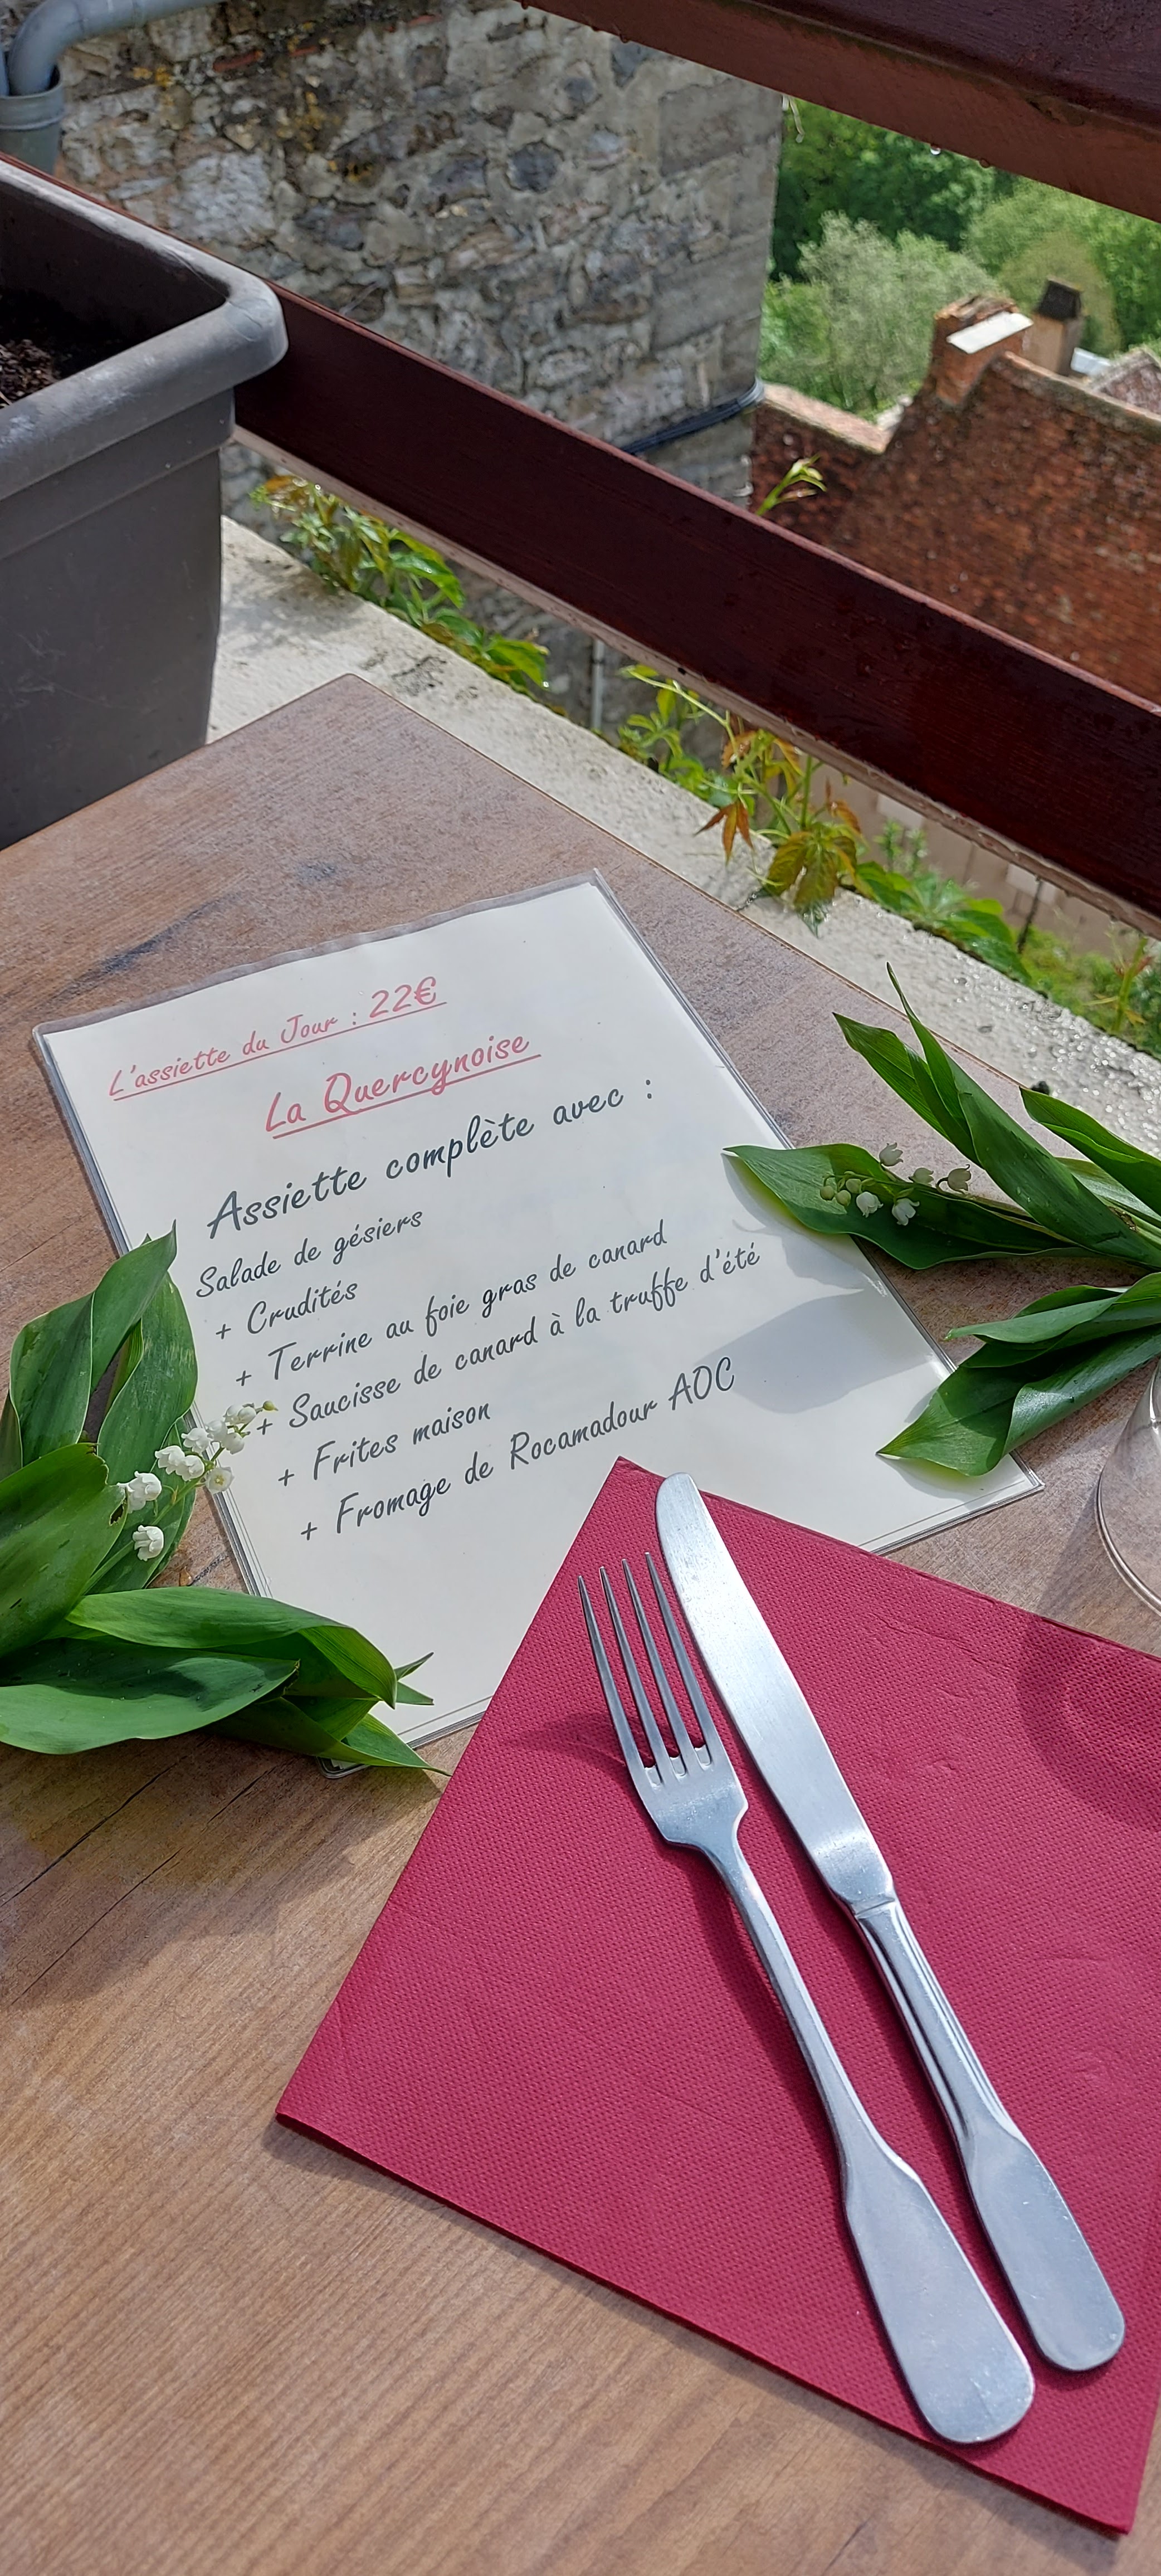 L'assiette du Jour : 22€
La Quercynoise
Assiette complète avec :
Salade de gésiers
+ Crudités
+ Terrine au foie gras de canard
+ Saucisse de canard à la truffe d'été
+ Frites maison
+ Fromage de Rocamadour AOC